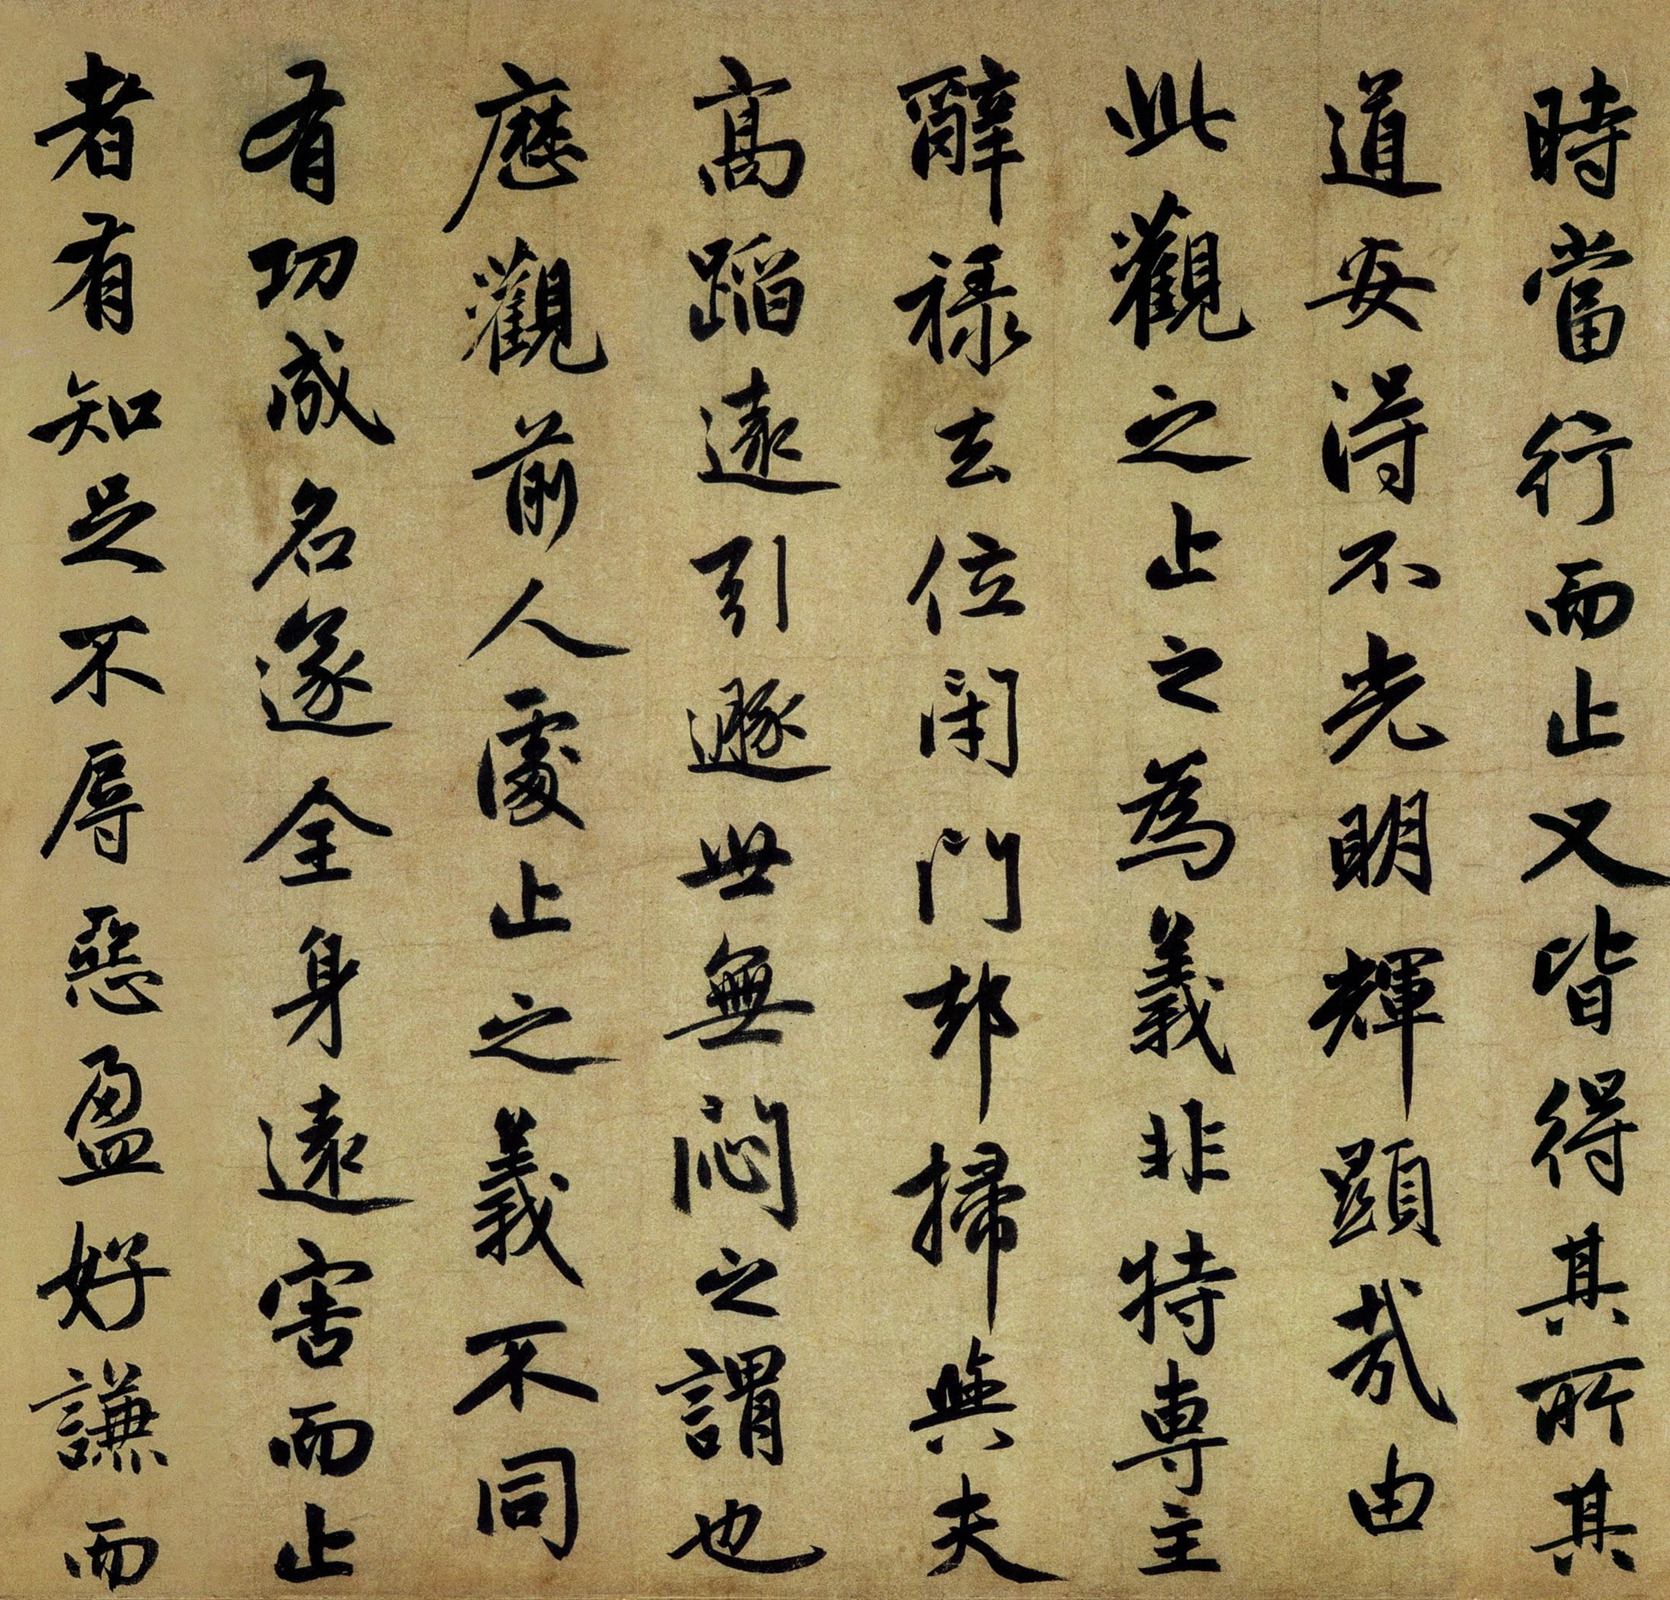 時當行而止又皆得其所其
道安得不光明輝顯哉由
此觀之止之為義非特專主
辭祿去位閉門却掃與夫
高蹈遠引遯世無悶之謂也
歷觀前人處止之義不同
有功成名遂全身遠害而止
者有知足不辱惡盈好謙而